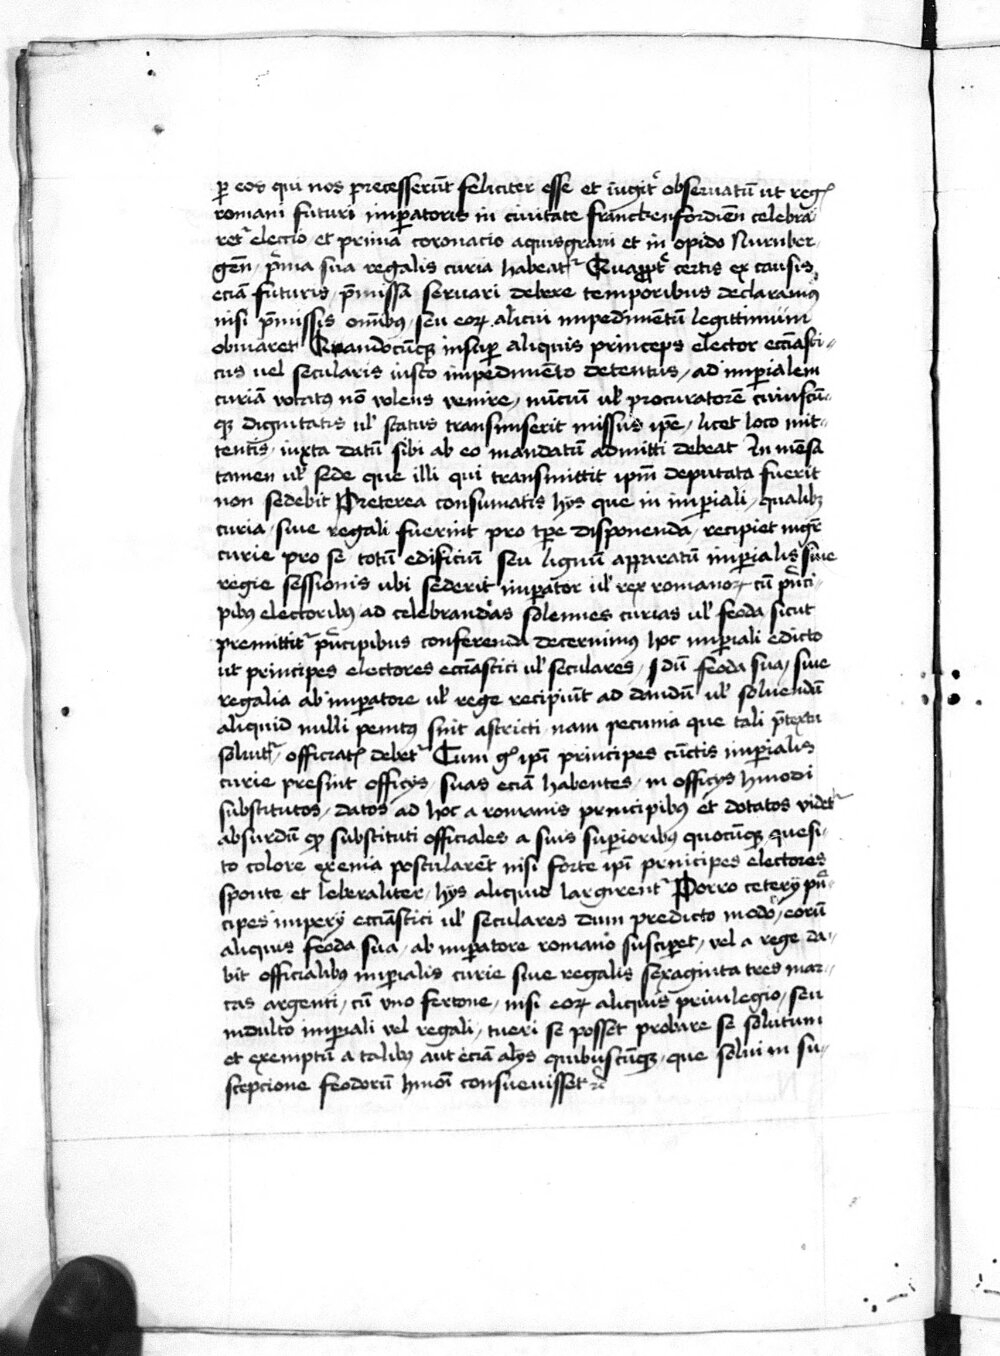 ꝑ eos qui nos precesserūt feliciter esse et iugit᷑ obseruatū ut reg
romani futuri imꝑatoris in ciuitate franckenfordień celebra
ret᷑ electio et prima coronacio aquisgrani et in opido Nurnber
geń p̄ma sua regalis curia habeat᷑ Quapropt᷑ certis ex causis
eciā futuris p̄missa seruari debere temporibus declaramꝰ
nisi p̄missis om̄ibꝫ seu eoꝝ alicui impedimētū legittimum
obuiaret Quandocūqꝫ insuꝑ aliquis princeps elector eccl̄asti-
cus uel secularis iusto impedimēto detentus ad imꝑialem
curiā vocatus nō volens venire nunciū ul̄ procuratorē cuiuscū-
qꝫ dignitatis ul̄ status transmiserit missus ip̄e licet loco mit-
tentis iuxta datū sibi ab eo mandatū admitti debeat In mēsa
tamen ul̄ sede que illi qui transmittit ip̄m deputata fuerit
non sedebit Preterea consumatis hijs que in imꝑiali qualibꝫ
curia siue regali fuerint pro tꝑe disponenda recipiet mgr̄
curie pro se totū edificiū seu ligneū apparatū imꝑialis siue
regie sessionis ubi sederit imꝑator ul̄ rex romanoꝝ cū p̄nci-
pibꝫ electoribꝫ ad celebrandas solennes curias ul̄ feoda sicut
premittit᷑ p̄ncipibus conferenda decernimꝰ hoc imꝑiali edicto
ut principes electores eccl̄astici ul̄ seculares dū feoda sua siue
regalia ab imꝑatore ul̄ rege recipiūt ad dandū ul̄ soluendū
aliquid nulli penitꝰ sint astricti nam pecunia que tali p̄textu
soluit᷑ officiatꝭ debet᷑ Cum gͦ ip̄i principes cūctis imꝑialis
curie presint officijs suas eciā habentes in officijs hmōdi
substitutos datos ad hoc a romanis principibꝰ et dotatos videt᷑
absurdū qꝫ substituti officiales a suis suꝑioribꝫ quocūqꝫ quesi-
to colore exenia postularēt nisi forte ip̄i principes electores
sponte et leberaliter hijs aliquid largirent᷑ Porro ceterij p̄n-
cipes imperij eccl̄astici ul̄ seculares dum predicto modo eorū
aliquis feoda sua ab imꝑatore romano susciꝑet vel a rege da-
bit officialibꝫ imꝑialis curie siue regalis sexaginta tres mar-
cas argenti cū vno fertone nisi eoꝝ aliquis priuilegio seu
indulto imꝑiali vel regali tueri se posset probare se solutum
et exemptū a talibꝫ aut eciā alijs quibuscūqꝫ que solui in su-
scepcione feodorū hmōi consueuisset ꝛc̄